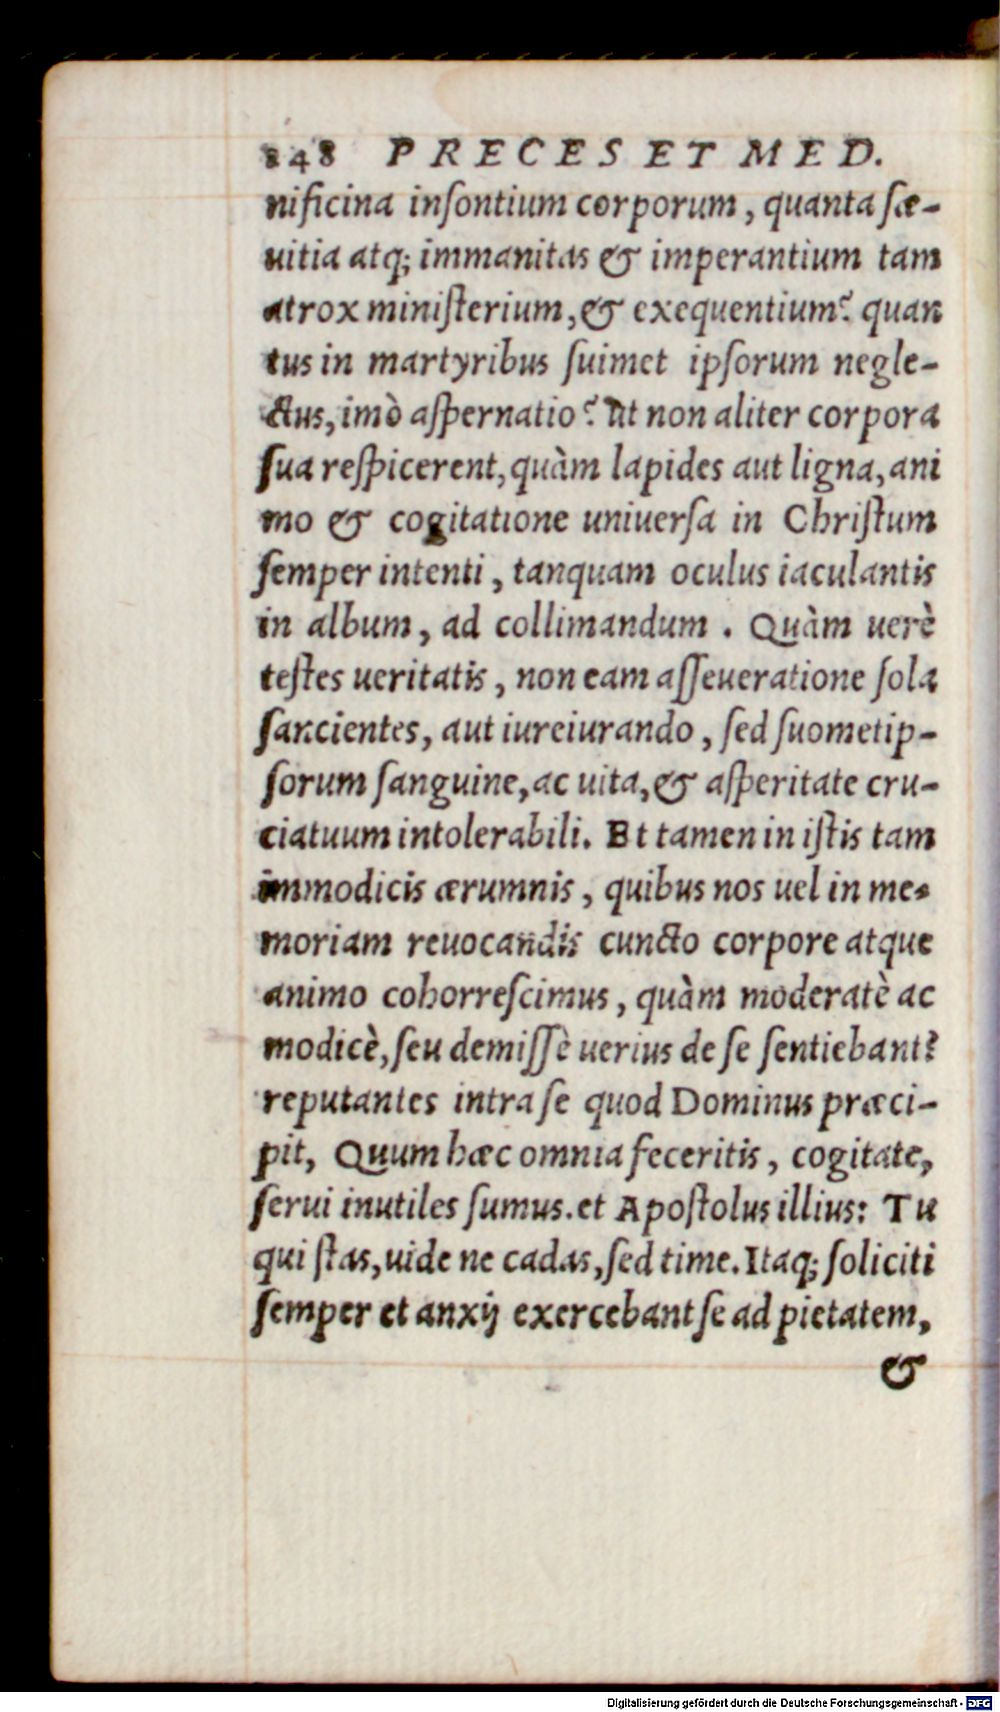 248 PRECES ET MED.
nificina inſontium corporum, quanta ſæ-
uitia atq; immanitas & imperantium tam
atrox miniſterium, & exequentium? quan
tus in martyribus ſuimet ipſorum negle-
ctus, imò aſpernatio? ut non aliter corpora
ſua reſpicerent, quàm lapides aut ligna, ani
mo & cogitatione uniuerſa in Chriſtum
ſemper intenti, tanquam oculus iaculantis
in album, ad collimandum. Quàm uerè
teſtes ueritatis, non eam aſſeueratione ſola
ſancientes, aut iureiurando, ſed ſuometip-
ſorum ſanguine, ac uita, & aſperitate cru-
ciatuum intolerabili. Et tamen in iſtis tam
immodicis ærumnis, quibus nos uel in me-
moriam reuocandis cuncto corpore atque
animo cohorreſcimus, quàm moderatè ac
modicè, ſeu demiſſè uerius de ſe ſentiebant?
reputantes intra ſe quod Dominus præci-
pit, Quum hæc omnia feceritis, cogitate,
ſerui inutiles ſumus. et Apoſtolus illius: Tu
qui ſtas, uide ne cadas, ſed time. Itaq; ſoliciti
ſemper et anxij exercebant ſe ad pietatem,
&
Digitalisierung gefördert durch die Deutsche Forschungsgemeinschaft - DFG